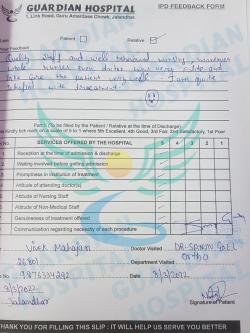 GUARDIAN HOSPITAL
1, Link Road, Guru Amardass Chowk, Jalandhar.
IPD FEEDBACK FORM
Patient
Relative ✓
Quality staff and well behaved nursing
well nurses on duties was very polite and
take care the patient very well. I am quite
satisfied with treatment.
Part-I (to be filled by the Patient / Relative at the time of Discharge)
Kindly tick mark on a scale of 5 to 1 where 5th Excellent, 4th Good, 3rd Fair, 2nd Satisfactory, 1st Poor
SERVICES OFFERED BY THE HOSPITAL 5 4 3 2 1
Reception at the time of admission & discharge
Waiting involved before getting admission
Promptness in institution of treatment
Attitude of attending doctor(s)
Attitude of Nursing Staff
Attitude of Non-Medical Staff
Genuineness of treatment offered
Communication regarding necessity of each procedure
Vivek Mahajan
Doctor Visited
26801
Department Visited
Ortho
No. 9876334292
Date 8/3/2022
8/3/2022
Jalandhar
Signature of Patient
THANK YOU FOR FILLING THIS SLIP : IT WILL HELP US SERVE YOU BETTER